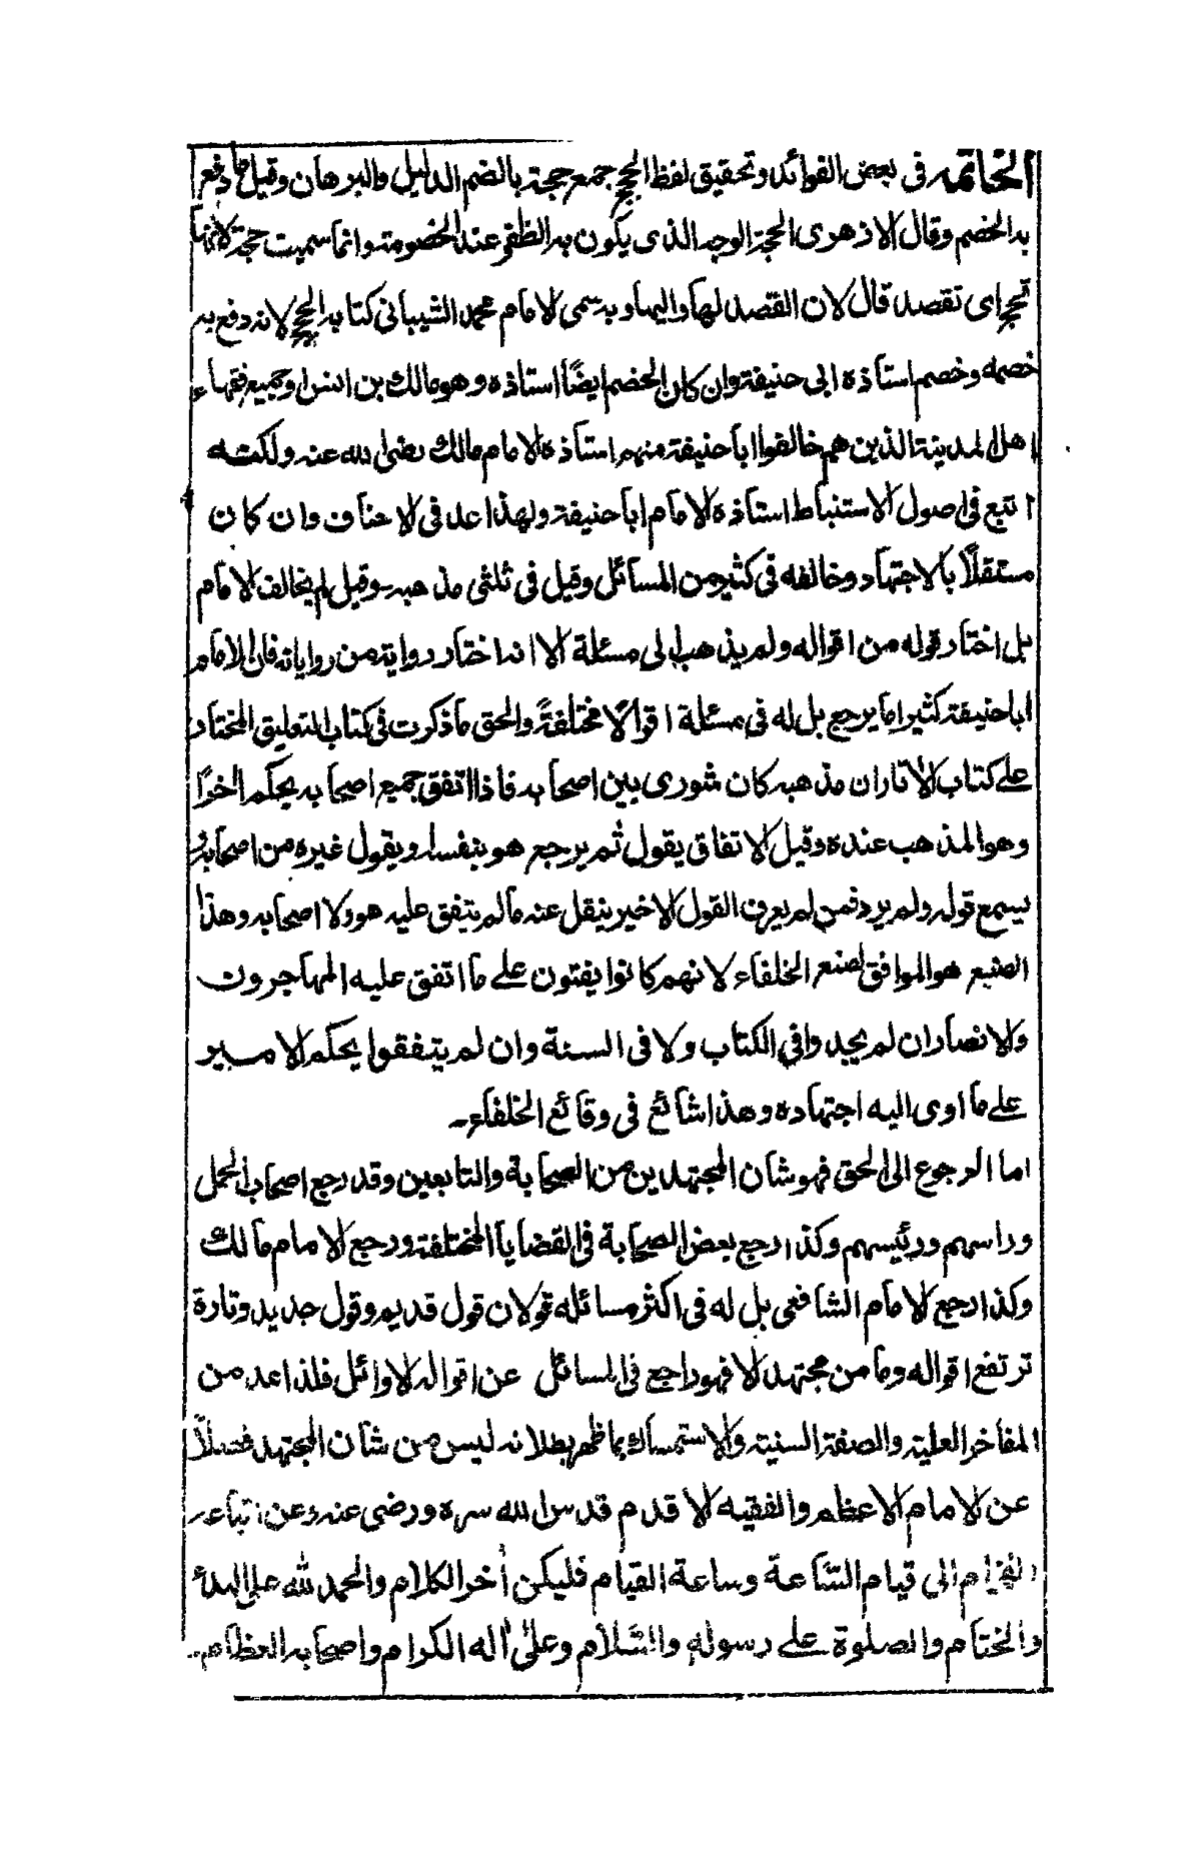 الخاتمه فى بعض الفوائد وتحقيق لفظ الحجج جمع حجة بالضم الدليل والبرهان وقيل ما دفع
به الخصم وقال الازهرى الحجة الوجه الذى يكون به الظفر عند الخصومة وانما سميت حجة لانها
تحج اى تقصد قال لان القصد لها واليها وبه سمى الامام محمد الشيبانى كتابه الحجج لانه دفع به
خصمه وخصم استاذه ابى حنيفة وان كان الخصم ايضًا استاذه وهو مالك بن انس وجميع فقهاء
اهل المدينة الذين هم خالفوا اباحنيفة منهم استاذه الامام مالك رضى الله عنه ولكنه
اتبع فى اصول الاستنباط استاذه الامام اباحنيفة ولهذا عد فى الاحناف وان كان
مستقلًا بالاجتهاد وخالفه فى كثير من المسائل وقيل فى ثلثى مذهبه وقيل لم يخالف الامام
بل اختار قوله من اقواله ولم يذهب الى مسئلة الا انه اختار رواية من رواياته فان الامام
اباحنيفة كثيرا ما يرجع بل له فى مسئلة اقوالًا مختلفةً والحق ما ذكرت فى كتاب التعليق المختار
على كتاب الآثار ان مذهبه كان شورى بين اصحابه فاذا اتفق جميع اصحابه يحكم اٰخرًا
وهو المذهب عنده وقيل الاتفاق يقول ثم يرجع هو بنفسه او يقول غيره من اصحابه
يسمع قوله ولم يرد فمن لم يعرف القول الاخير ينقل عنه ما لم يتفق عليه هو ولا اصحابه وهذا
الصنيع هو الموافق لصنع الخلفاء لانهم كانوا يفتون على ما اتفق عليه المهاجرون
والانصار ان لم يجدوا فى الكتاب ولا فى السنة وان لم يتفقوا يحكم الامير
على ما اوى اليه اجتهاده وهذا شائع فى وقائع الخلفاء۔
اما الرجوع الى الحق فهو شان المجتهدين من الصحابة والتابعين وقد رجع اصحاب الجمل
وراسهم ورئيسهم وكذا رجع بعض الصحابة فى القضايا المختلفة ورجع الامام مالك
وكذا رجع الامام الشافعى بل له فى اكثر مسائله قولان قول قديم وقول جديد وتارة
ترتفع اقواله وما من مجتهد الا فهو راجع فى المسائل عن اقواله الاوائل فلذا عد من
المفاخر العلية والصفة السنية والاستمساك بما ظهر بطلانه ليس من شان المجتهد فضلًا
عن الامام الاعظم والفقيه الاقدم قدس الله سره ورضى عنه وعن اتباعه
الفخام الى قيام السّاعة وساعة القيام فليكن اٰخر الكلام والحمد لله على البدء
والختام والصلوة على رسوله والسّلام وعلىٰ اٰله الكرام واصحابه العظام۔